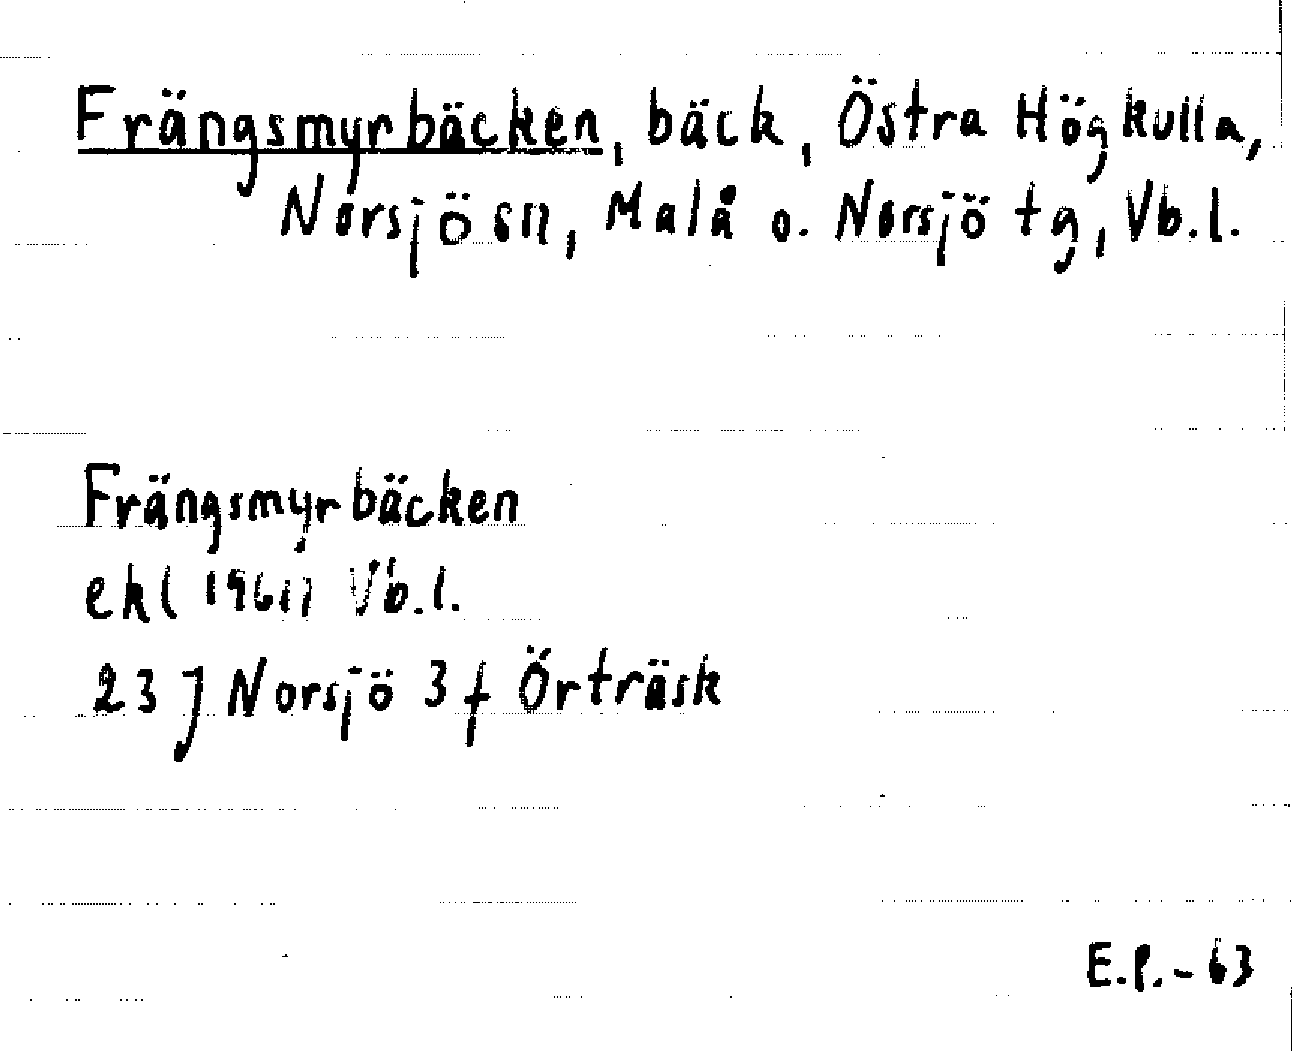 Frängsmyrbäcken, bäck, Östra Högkulla,
Norsjö sn, Malå o. Norsjö tg, Vb.l.
Frängsmyrbäcken
ekl 1961 Vb.l.
23 J Norsjö 3 f Örträsk
E.P.-63